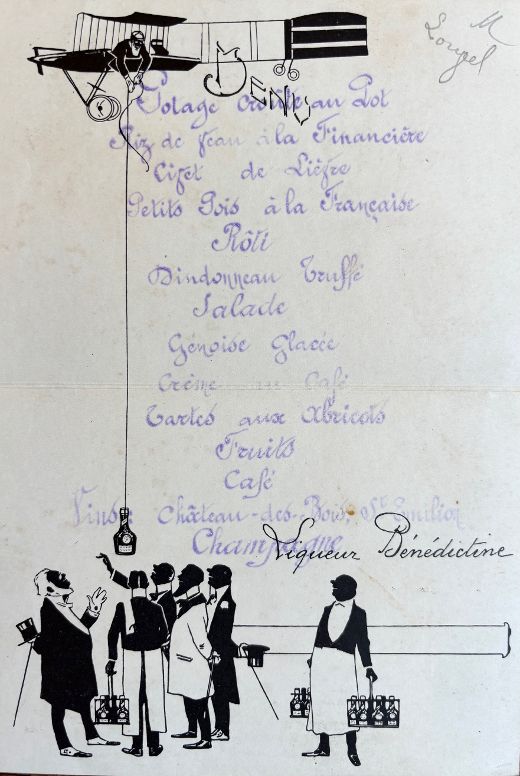 M
Lougel
Menu
Potage Croûte au Pot
Riz de Veau à la Financière
Civet de Lièvre
Petits Pois à la Française
Rôti
Dindonneau Truffé
Salade
Génoise Glacée
Crème au Café
Tartes aux Abricots
Fruits
Café
Vins: Château-des-Bois, St Emilion
Champagne
Liqueur Bénédictine